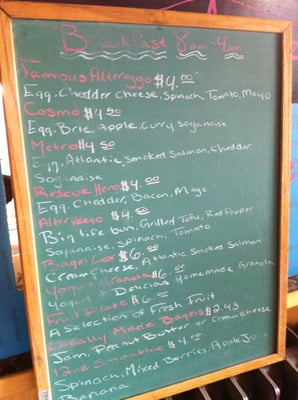 Breakfast 8am-4am
Famous Alterego $4.00
Egg, Chedder cheese, Spinach, Tomato, Mayo
Cosmo $4.50
Egg, Brie, Apple, Curry Soyanaise
Metro $4.50
Egg, Atlantic Smoked Salmon, Chedder,
Soyanaise
Rescue Hero $4.00
Egg, Chedder, Bacon, Mayo
Alter Veego $4.50
Big life bun, Grilled Tofu, Red Pepper
Soyanaise, Spinach, Tomato
Bagel Lox $6.00
Cream Cheese, Atlantic Smoked Salmon
Yogurt Granola $6.00
Yogurt + Delicious Homemade Granola
Fruit Plate $6.00
A Selection of Fresh Fruit
Locally Made Bagels $2.43
Jam, Peanut Butter or Creamcheese
12oz Smoothie $4.00
Spinach, Mixed Berries, Apple Juice
Banana